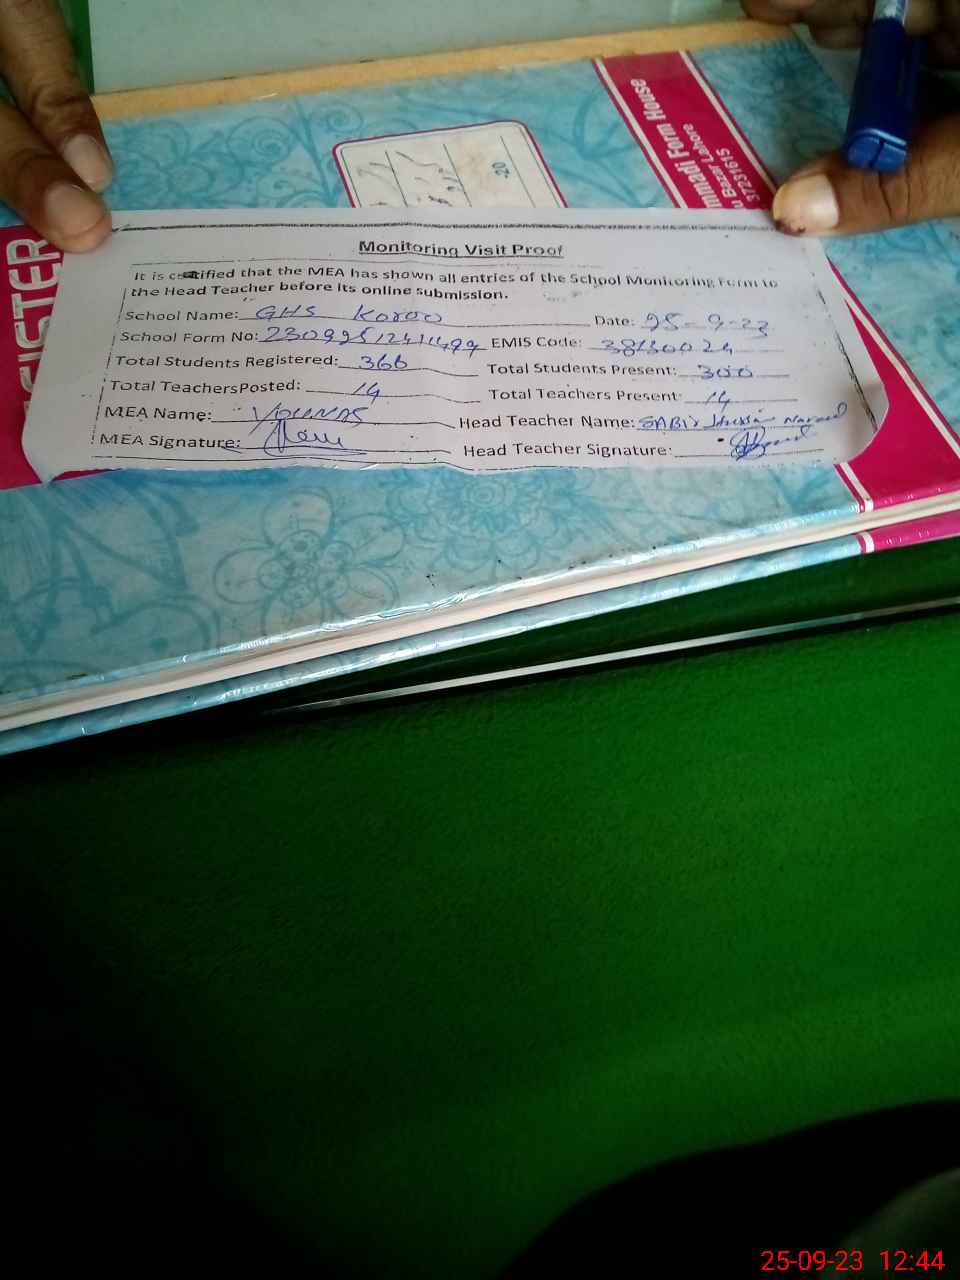 mmadi Form House
u Bazar Lahore
37231615
-20
GISTER
Monitoring Visit Proof
It is certified that the MEA has shown all entries of the School Monitoring Form to
the Head Teacher before its online submission.
School Name: GHS Koroo Date: 25-9-23
School Form No: EMIS Code: 38130024
Total Students Registered: 366 Total Students Present: 300
Total TeachersPosted: 14 Total Teachers Present: 14
MEA Name: YOUNAS Head Teacher Name: SABIR
MEA Signature: Head Teacher Signature:
25-09-23 12:44